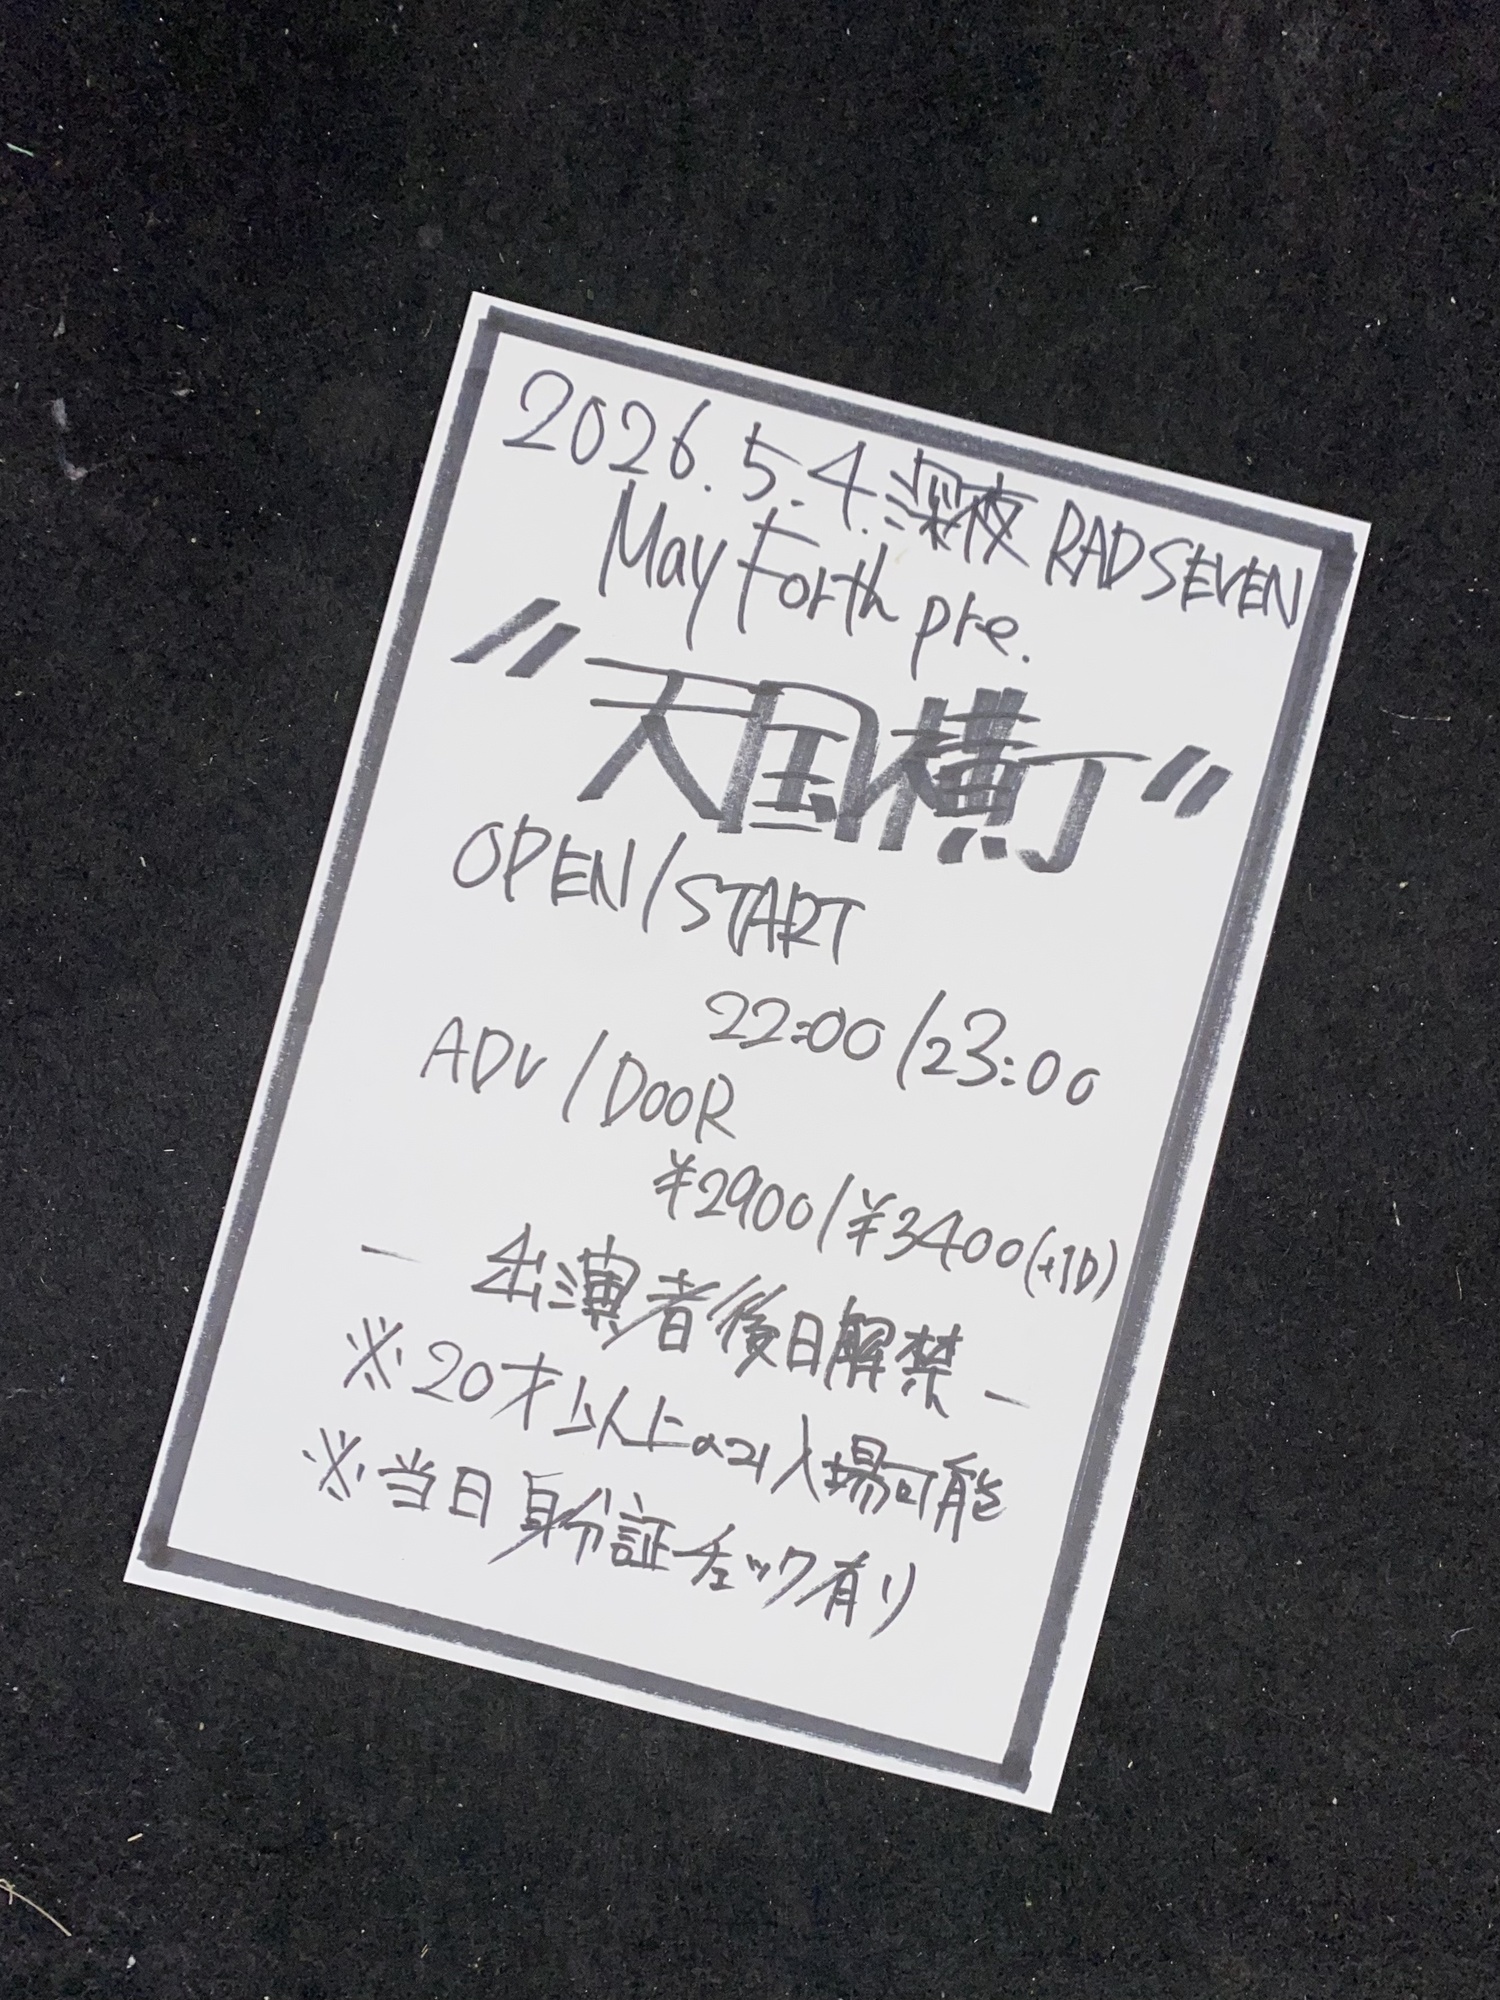 2026.5.4.深夜 RAD SEVEN
May Forth pre.
"天国横丁"
OPEN/START
22:00/23:00
ADV/DOOR
¥2900/¥3400(+1D)
- 出演者後日解禁 -
※20才以上のみ入場可能
※当日身分証チェック有り